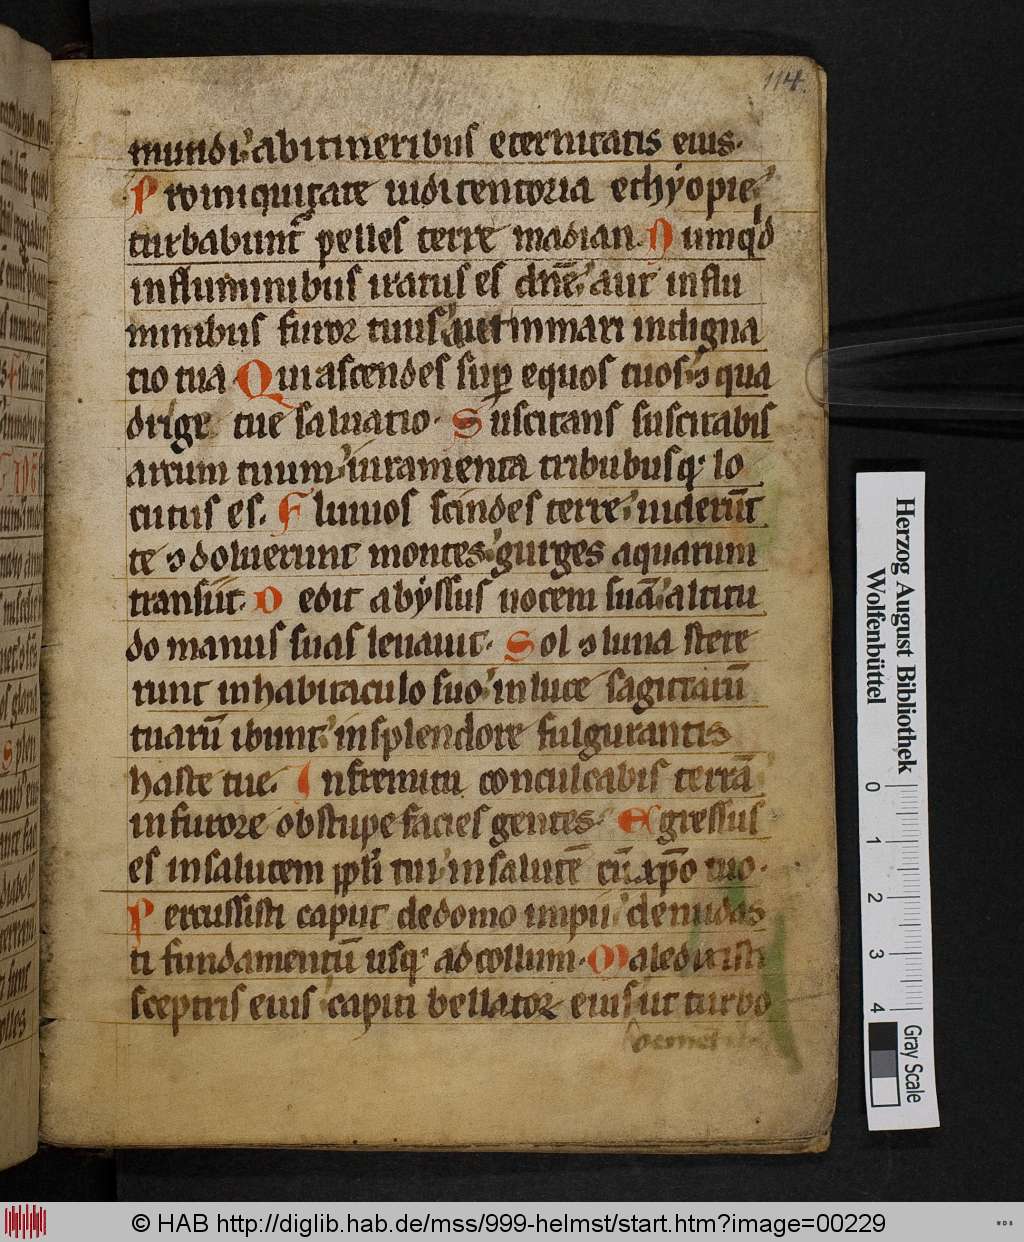 114.
mundi. ab itineribus eternitatis eius.
Pro iniquitate uidi tentoria ethyopie.
turbabunt pelles terre madian. Numqd
in fluminibus iratus es dñe. aut in flu
minibus furor tuus. uel in mari indigna
tio tua Qui ascendes sup equos tuos. ⁊ qua
drige tue saluatio. Suscitans suscitabis
arcum tuum. iuramenta tribubus q lo
cutus es. Fluuios scindes terre. uiderūt
te ⁊ doluerunt montes. gurges aquarum
transiit. Dedit abyssus uocem suā. altitu
do manus suas leuauit. Sol ⁊ luna stete
runt in habitaculo suo. in luce sagittarū
tuarū ibunt. in splendore fulgurantis
haste tue. In fremitu conculcabis terrā
in furore obstupefacies gentes. Egressus
es in salutem ppli tui. in salutē cū xp̄o tuo.
Percussisti caput de domo impii. denudas
ti fundamentū usq ad collum. Maledixisti
sceptris eius. capiti bellator eius ut turbo
Herzog August Bibliothek
Wolfenbüttel
0 1 2 3 4
Gray Scale
© HAB http://diglib.hab.de/mss/999-helmst/start.htm?image=00229